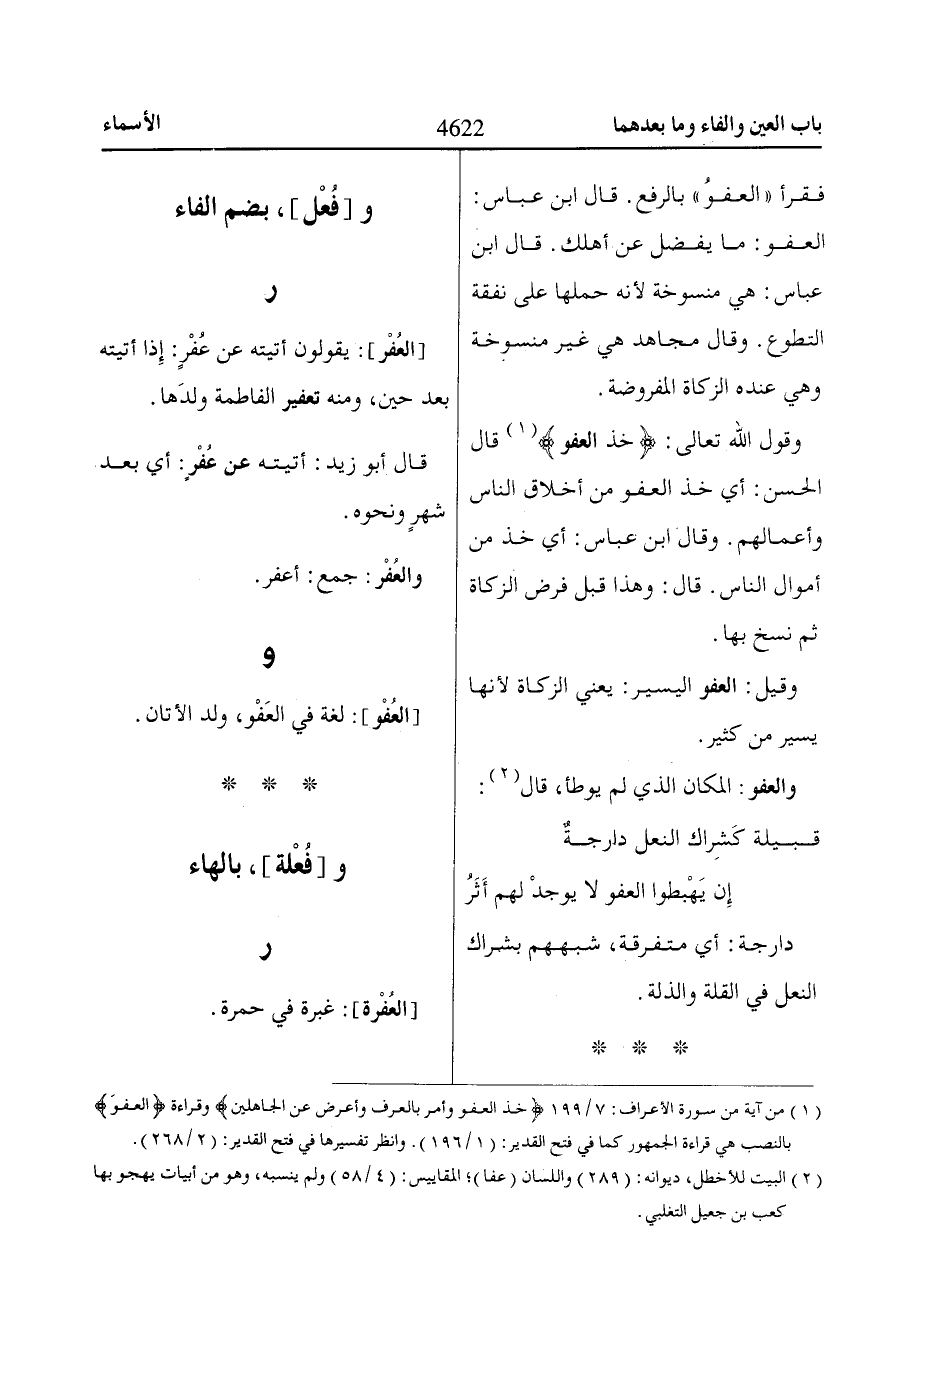 باب العين والفاء وما بعدهما 4622 الأسماء
فقرأ «العفوُ» بالرفع. قال ابن عباس:
العفو: ما يفضل عن أهلك. قال ابن
عباس: هي منسوخة لأنه حملها على نفقة
التطوع. وقال مجاهد هي غير منسوخة
وهي عنده الزكاة المفروضة.
وقول الله تعالى: ﴿خذ العفو﴾(١) قال
الحسن: أي خذ العفو من أخلاق الناس
وأعمالهم. وقال ابن عباس: أي خذ من
أموال الناس. قال: وهذا قبل فرض الزكاة
ثم نسخ بها.
وقيل: العفو اليسير: يعني الزكاة لأنها
يسير من كثير.
والعفو: المكان الذي لم يوطأ، قال(٢):
قبيلة كَشِراك النعل دارجةٌ
إِن يَهْبطوا العفو لا يوجدْ لهم أَثَرُ
دارجة: أي متفرقة، شبههم بشراك
النعل في القلة والذلة.
* * *
و [فُعْل]، بضم الفاء
ر
[العُفْر]: يقولون أتيته عن عُفْرٍ: إِذا أتيته
بعد حين، ومنه تعفير الفاطمة ولدَها.
قال أبو زيد: أتيته عن عُفْرٍ: أي بعد
شهرٍ ونحوه.
والعُفْر: جمع: أعفر.
و
[العُفْو]: لغة في العَفْو، ولد الأتان.
* * *
و [فُعْلة]، بالهاء
ر
[العُفْرة]: غبرة في حمرة.
(١) من آية من سورة الأعراف: ٧/ ١٩٩ ﴿خذ العفو وأمر بالعرف وأعرض عن الجاهلين﴾ وقراءة ﴿العفوَ﴾
بالنصب هي قراءة الجمهور كما في فتح القدير: (١/ ١٩٦). وانظر تفسيرها في فتح القدير: (٢/ ٢٦٨).
(٢) البيت للأخطل، ديوانه: (٢٨٩) واللسان (عفا)؛ المقاييس: (٤/ ٥٨) ولم ينسبه، وهو من أبيات يهجو بها
كعب بن جعيل التغلبي.